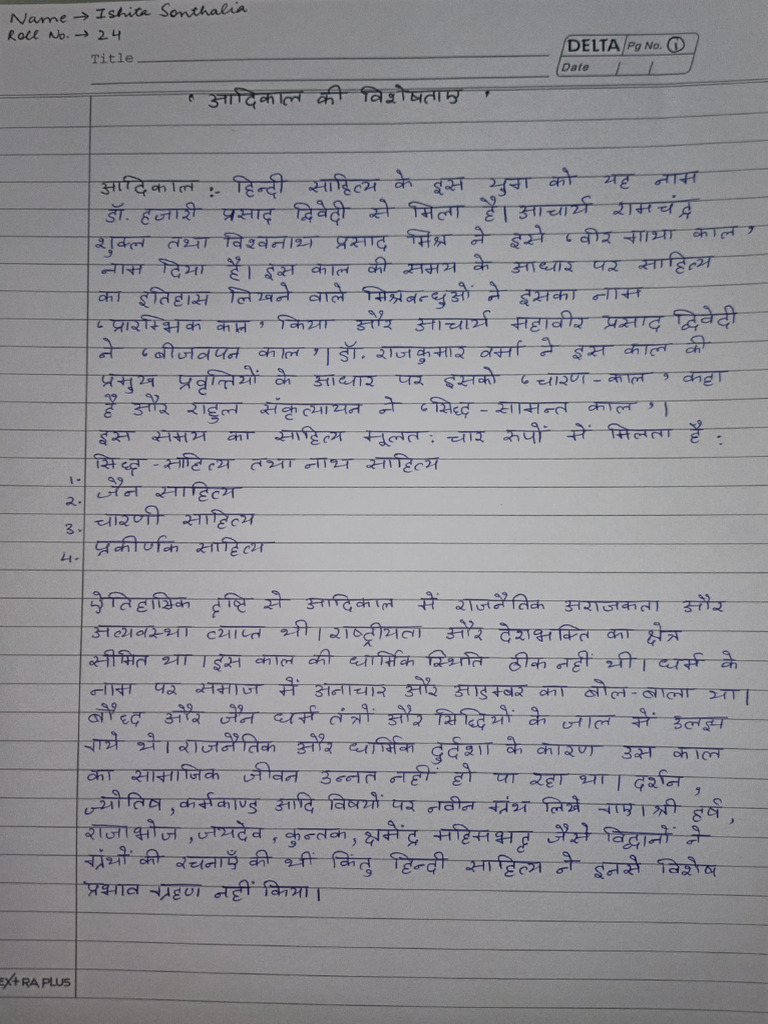 Name → Ishita Sonthalia
Roll No. → 24
Title
DELTA Pg No. 1
Date / /
' आदिकाल की विशेषताए '
आदिकाल :- हिन्दी साहित्य के इस युग को यह नाम
डॉ. हजारी प्रसाद द्विवेदी से मिला है। आचार्य रामचंद्र
शुक्ल तथा विश्वनाथ प्रसाद मिश्र ने इसे 'वीर गाथा काल'
नाम दिया है। इस काल की समय के आधार पर साहित्य
का इतिहास लिखने वाले मिश्रबन्धुओं ने इसका नाम
'प्रारम्भिक काल' किया और आचार्य महावीर प्रसाद द्विवेदी
ने 'बीजवपन काल'। डॉ. राजकुमार वर्मा ने इस काल की
प्रमुख प्रवृत्तियों के आधार पर इसको 'चारण-काल' कहा
है और राहुल संकृत्यायन ने 'सिद्ध-सामन्त काल'।
इस समय का साहित्य मूलत: चार रुपों में मिलता है :
1. सिद्ध-साहित्य तथा नाथ साहित्य
2. जैन साहित्य
3. चारणी साहित्य
4. प्रकीर्णक साहित्य
ऐतिहासिक दृष्टि से आदिकाल में राजनैतिक अराजकता और
अव्यवस्था व्याप्त थी। राष्ट्रीयता और देशभक्ति का क्षेत्र
सीमित था। इस काल की धार्मिक स्थिति ठीक नहीं थी। धर्म के
नाम पर समाज में अनाचार और आडम्बर का बोल-बाला था।
बौध्द और जैन धर्म तंत्रों और सिद्धियों के जाल में उलझ
गये थे। राजनैतिक और धार्मिक दुर्दशा के कारण उस काल
का सामाजिक जीवन उन्नत नहीं हो पा रहा था। दर्शन,
ज्योतिष, कर्मकाण्ड आदि विषयों पर नवीन ग्रंथ लिखे गए। श्री हर्ष,
राजाभोज, जयदेव, कुन्तक, क्षमेंद्र महिमभट्ट जैसे विद्वानों ने
ग्रंथों की रचनाएँ की थीं किंतु हिन्दी साहित्य ने इनसे विशेष
प्रभाव ग्रहण नहीं किया।
EXTRA PLUS